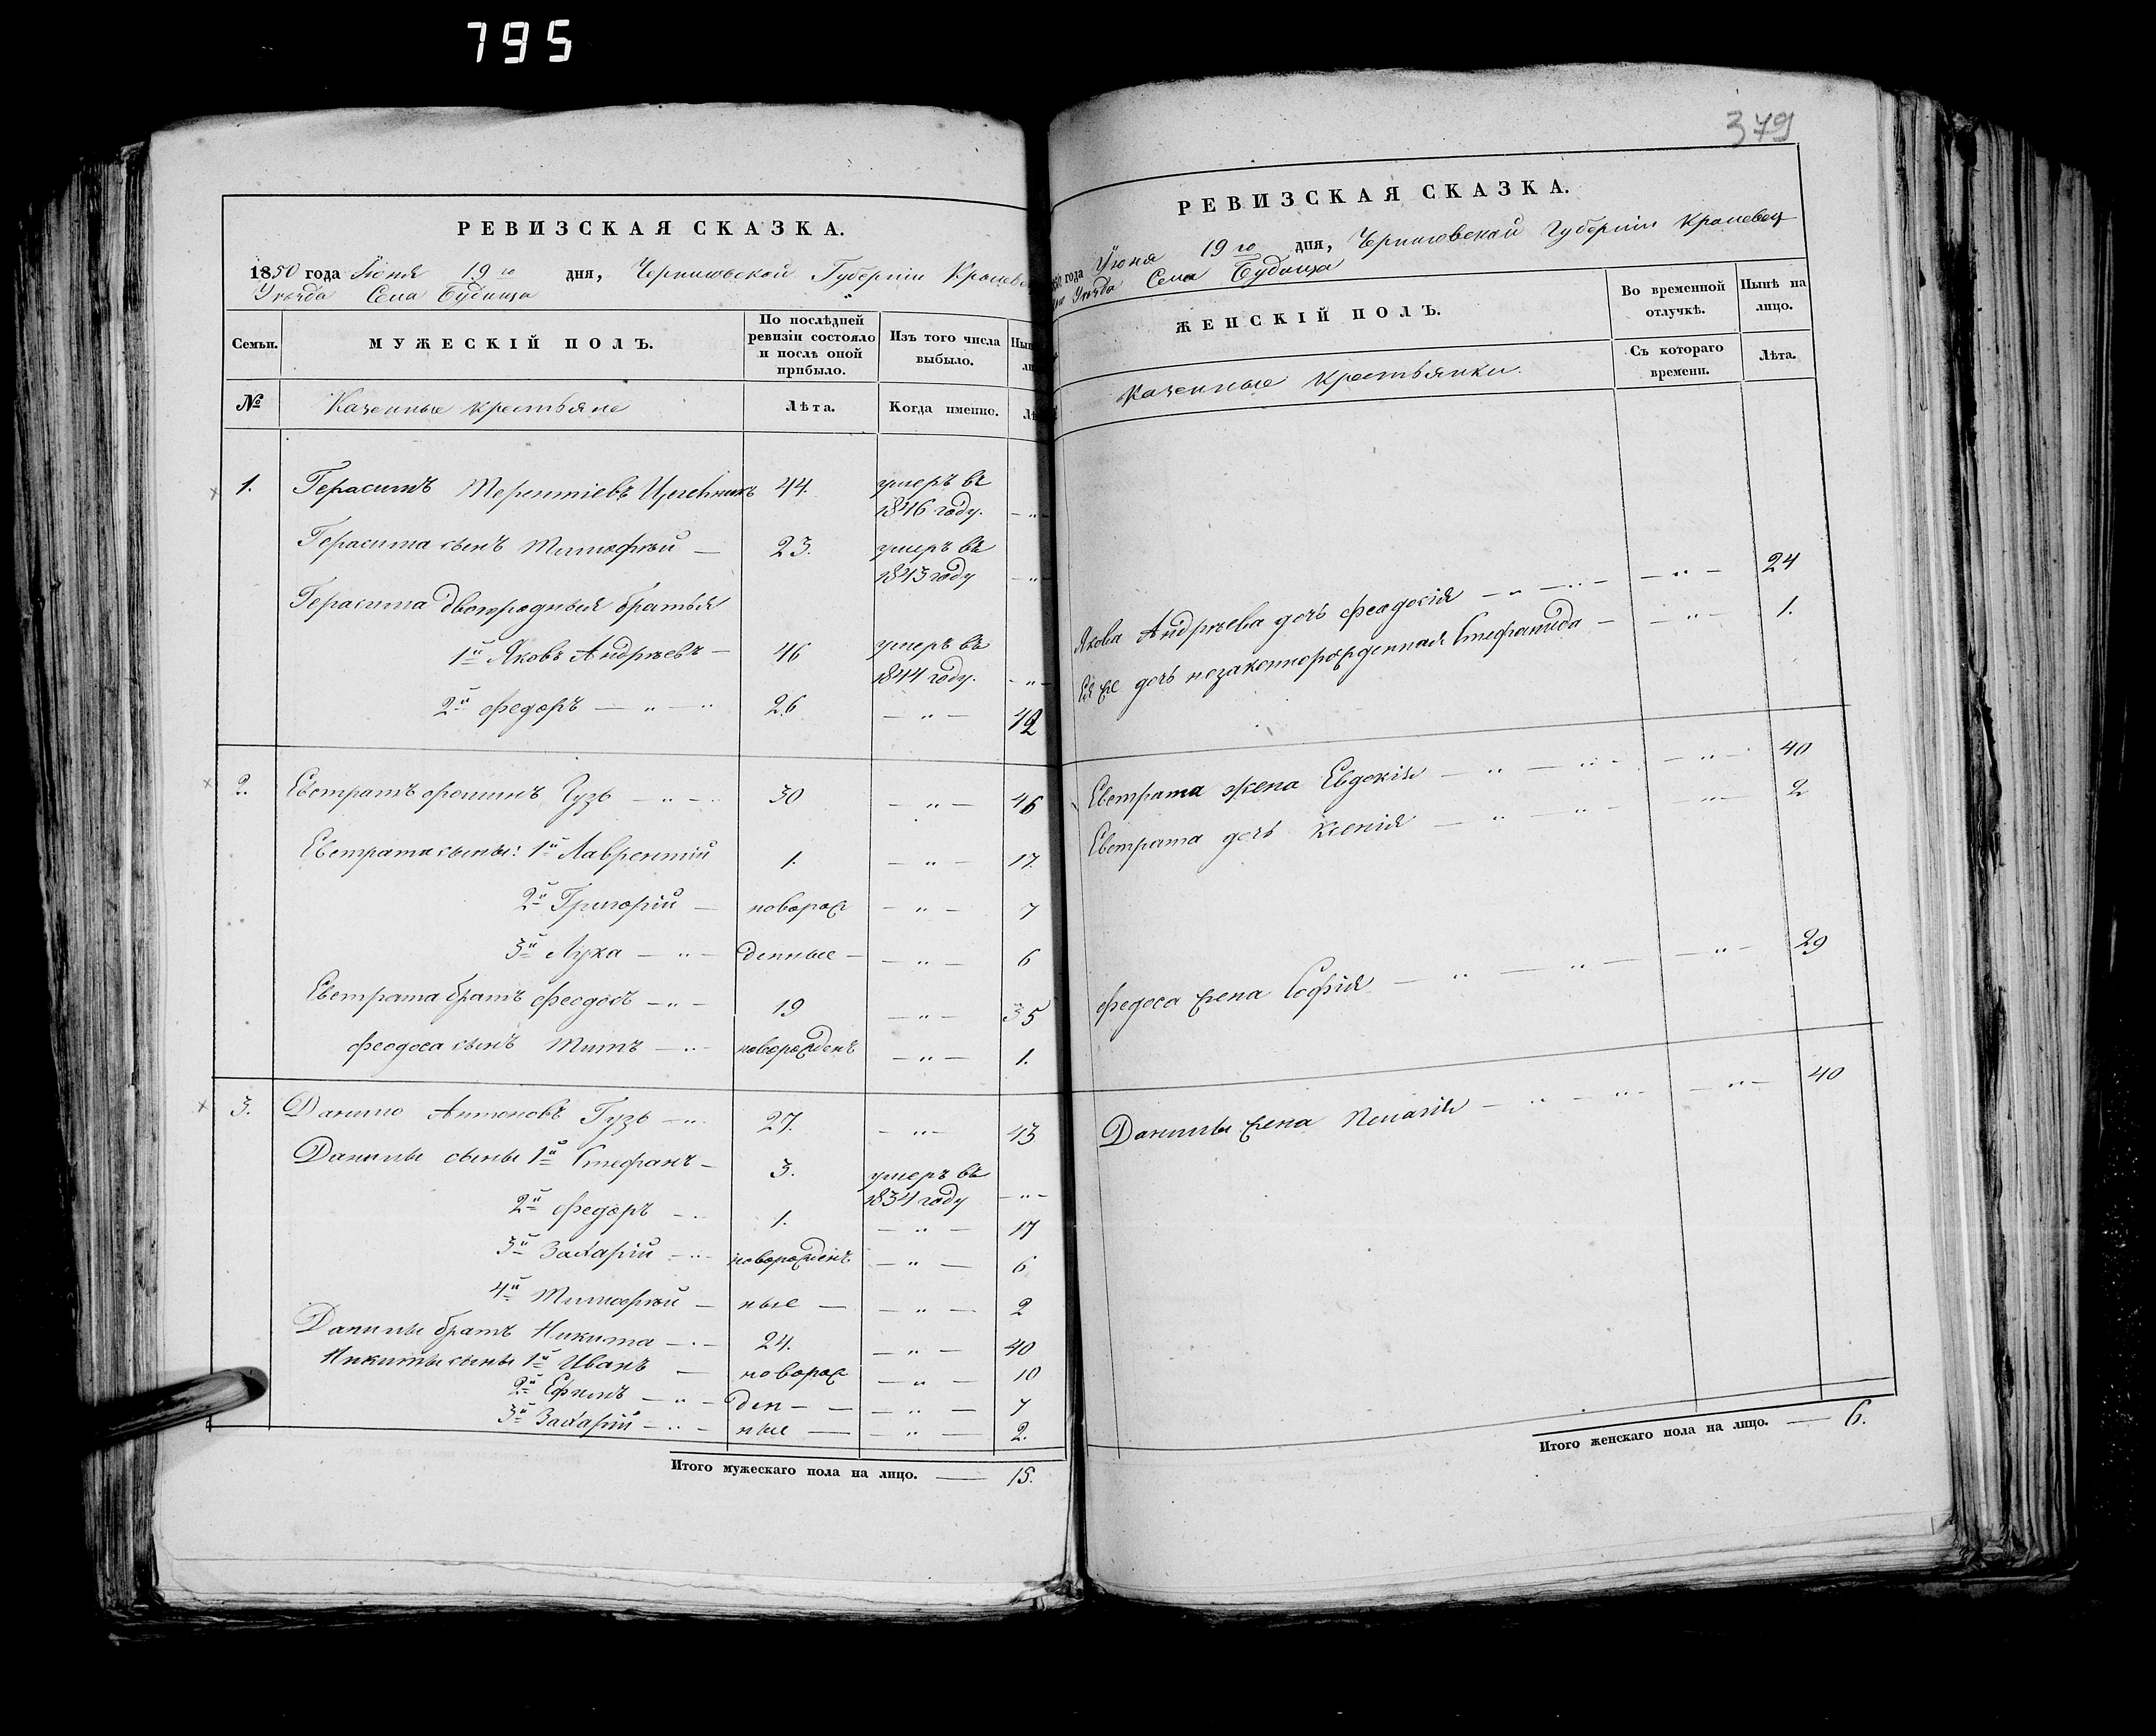 795
РЕВИЗСКАЯ СКАЗКА.
1850 года Іюня 19го дня, Черниговской Губерніи Кролев
Уѣзда Села Будища
Семьи.
МУЖЕСКІЙ ПОЛЪ.
По послѣдней ревизіи состояло и послѣ оной прибыло.
Изъ того числа выбыло.
№
Казенные крестьяне
Лѣта.
Когда именно.
1. Герасимъ Терентіевъ 44. умеръ въ
1846 году. — „ —
Герасима сынъ Тимофѣй — 23. умеръ въ
1843 году — „ —
Герасима двоюродныя братья
1й Яковъ Андрѣевъ — 46 умеръ въ
1844 году. — „ —
2й Федоръ — „ — „ 26 — „ — 42
2. Евстратъ Фоминъ Гузь — „ — 30 — „ — 46
Евстрата сыны: 1й Лаврентій 1. — „ — 17.
2й Григорій — новорож — „ — 7
3й Лука — „ — денные — — „ — 6
Евстрата братъ Феодосъ — „ — 19 — „ — 35
Феодоса сынъ Титъ — „ — новорожденъ — „ — 1.
3. Данило Антоновъ Гузь — „ 27. — „ — 43
Данилы сыны 1й Стефанъ — 3. умеръ въ
1834 году — „ —
2й Федоръ — „ 1. — „ — 17
3й Захарій — „ — новорожден — „ — 6
4й Тимофѣй — ные — — „ — 2
Данилы братъ Никита — „ — 24. — „ — 40
Никиты сыны 1й Иванъ — новорож — „ — 10
2й Ефимъ — „ — ден — — — „ — 7
3й Захарій — „ — ные — — „ — 2.
Итого мужескаго пола на лицо. — 15.
379
РЕВИЗСКАЯ СКАЗКА.
года Іюня 19го дня, Черниговской Губерніи Кролевец
Уѣзда Села Будища
ЖЕНСКІЙ ПОЛЪ.
Во временной отлучкѣ.
Нынѣ на лицо.
Казенные крестьянки.
Съ котораго времени.
Лѣта.
Якова Андрѣева дочь Феодосія — „ — „ — — „ — 24
Ея же дочь незаконнорожденная Стефанида — — „ — 1.
Евстрата жена Евдокія — „ — „ — — „ — 40
Евстрата дочь Ксенія — „ — „ — — „ — 2
Федоса жена Софія — „ — „ — — „ — 29
Данилы жена Пелагія — „ — „ — — „ — 40
Итого женскаго пола на лицо. — 6.